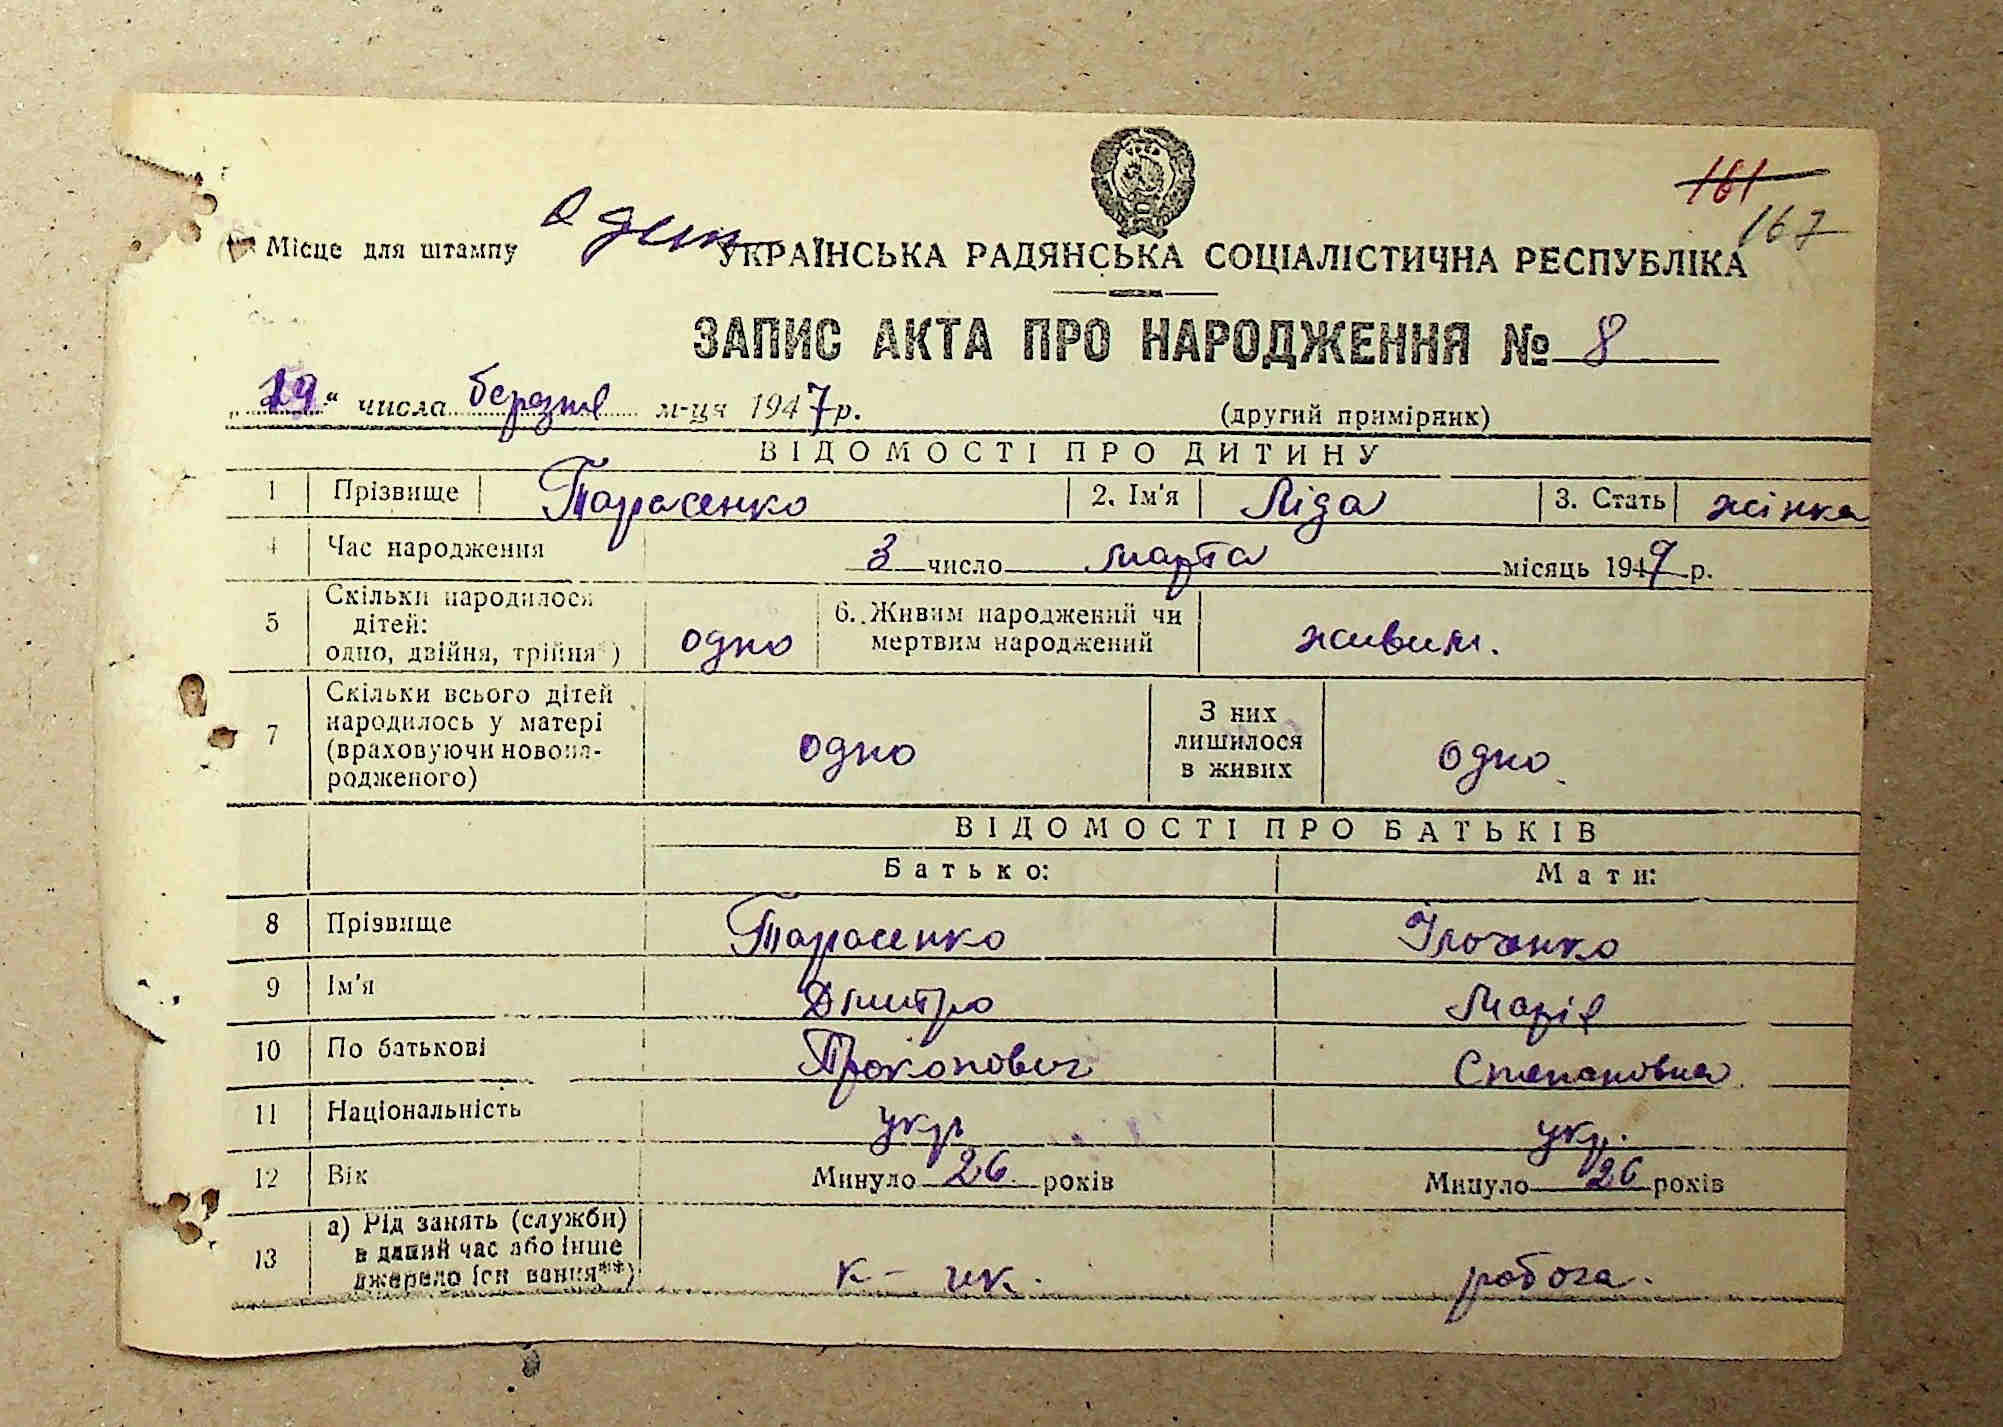 161
167
Місце для штампу
УКРАЇНСЬКА РАДЯНСЬКА СОЦІАЛІСТИЧНА РЕСПУБЛІКА
ЗАПИС АКТА ПРО НАРОДЖЕННЯ № 8
„29“ числа березня м-ця 1947 р.
(другий примірник)
ВІДОМОСТІ ПРО ДИТИНУ
1 Прізвище Тарасенко 2. Ім'я Ліда 3. Стать жінка
4 Час народження 3 число марта місяць 1947 р.
5 Скільки народилося дітей: одно, двійня, трійня*) одно 6. Живим народжений чи мертвим народжений живим.
7 Скільки всього дітей народилось у матері (враховуючи новонародженого) одно З них лишилося в живих одно.
ВІДОМОСТІ ПРО БАТЬКІВ
Батько: Мати:
8 Прізвище Тарасенко
9 Ім'я Дмитро Марія
10 По батькові Прокопович Степановна
11 Національність укр укр.
12 Вік Минуло 26 років Минуло 26 років
13 а) Рід занять (служби) в даний час або інше джерело існування**) к-ик. робоча.